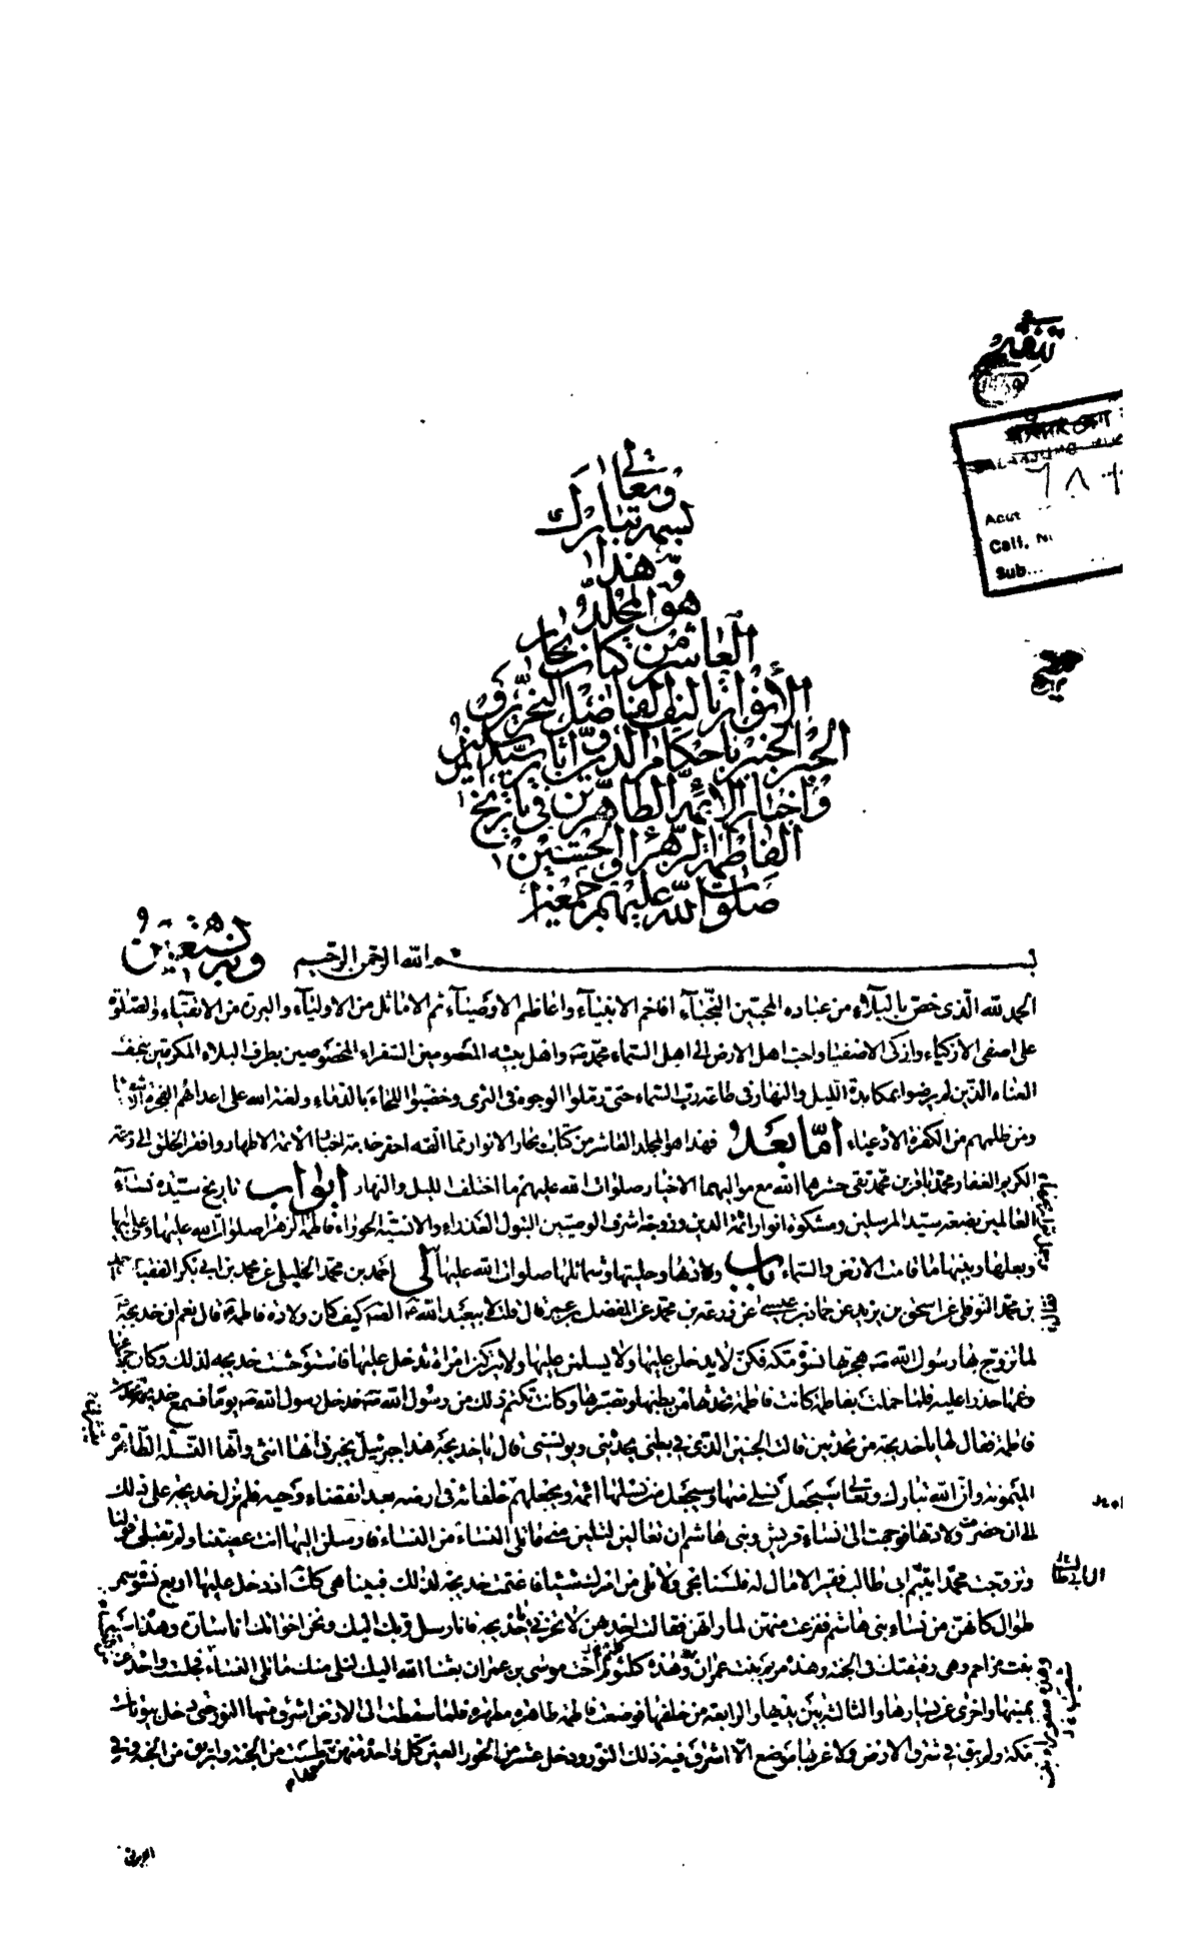 وتعالى
بسمه تبارك
وهذا
هو المجلد
العاشر من كتاب بحار
الأنوار تاليف الفاضل النحرير و
الحبر الخبير باحكام الدين و آثار سيد المر
واخبار الائمة الطاهرين في تاريخ
الفاطمة الزهرا و الحسنين
صلوات الله عليهم اجمعين
بسم الله الرحمن الرحيم وبه نستعين
الحمد لله الذى خص بالبلاء من عباده المجتبين النجباء افاخم الانبياء واعاظم الاوصياء ثم الاماثل من الاولياء والبررة من الاتقياء والصلوة
على اصفى الازكياء وازكى الاصفياء واحب اهل الارض الى اهل السماء محمد ص واهل بيته المعصومين السفراء المخصوصين بطرف البلاء المكرمين بتحف
العناء الذين لم يرضوا بمكابدة الليل والنهار فى طاعة رب السماء حتى رملوا الوجوه فى الثرى وخضبوا اللحاء بالدماء ولعنة الله على اعدائهم الفجرة
ومن ظلمهم من الكفرة الادعياء اما بعد فهذا هو المجلد العاشر من كتاب بحار الانوار مما الفه احقر خدمة اخبار الائمة الاطهار وافقر الخلق الى رحمة
الكريم الغفار محمد باقر بن محمد تقى حشرهما الله مع مواليهما الاخيار صلوات الله عليهم ما اختلف الليل والنهار ابواب تاريخ سيدة نساء
العالمين بضعة سيد المرسلين ومشكوة انوار ائمة الدين وزوجة اشرف الوصيين البتول العذراء والانسية الحوراء فاطمة الزهرا صلوات الله عليها وعلى ابيها
وبعلها وبنيها ما قامت الارض والسماء باب ولادتها وحليتها وشمائلها صلوات الله عليها لى احمد بن محمد الخليلى عن محمد بن ابى بكر الفقيه
بن محمد النوفلى عن اسحق بن يزيد عن حماد بن عيسى عن زرعة بن محمد عن المفضل بن عمر قال قلت لابيعبد الله ع كيف كان ولادة فاطمة ع قال نعم ان خديجة
لما تزوج بها رسول الله ص هجرتها نسوة مكة فكن لا يدخلن عليها ولا يسلمن عليها ولا يتركن امراة تدخل عليها فاستوحشت خديجه لذلك وكان جزعها
وغمها حذرا عليه فلما حملت بفاطمة كانت فاطمة تحدثها من بطنها وتصبرها وكانت تكتم ذلك من رسول الله ص فدخل رسول الله ص يوما فسمع خديجة تحدث
فاطمة فقال لها يا خديجة من تحدثين قالت الجنين الذى فى بطنى يحدثنى ويونسنى قال يا خديجة هذا جبرئيل يخبرنى انها انثى وانها النسلة الطاهرة
الميمونة وان الله تبارك وتعالى سيجعل نسلى منها وسيجعل من نسلها ائمة ويجعلهم خلفائه فى ارضه بعد انقضاء وحيه فلم تزل خديجة على ذلك
الى ان حضرت ولادتها فوجهت الى نساء قريش وبنى هاشم ان تعالين لتلين منى ما تلى النساء من النساء فارسلن اليها انت عصيتنا ولم تقبلى قولنا
وتزوجت محمدا يتيم ابى طالب فقيرا لا مال له فلسنا نجى ولا نلى من امرك شيئا فاغتمت خديجة لذلك فبينا هى كذلك اذ دخل عليها اربع نسوة سمر
طوال كانهن من نساء بنى هاشم ففزعت منهن لما راتهن فقالت احدهن لا تحزنى يا خديجة فانا رسل ربك اليك ونحن اخواتك انا سارة وهذه اسية
بنت مزاحم وهى رفيقتك فى الجنة وهذه مريم بنت عمران وهذه كلثوم اخت موسى بن عمران بعثنا الله اليك لنلى منك ما تلى النساء فجلست واحدة عن
يمينها واخرى عن يسارها والثالثة بين يديها والرابعة من خلفها فوضعت فاطمة طاهرة مطهرة فلما سقطت الى الارض اشرق منها النور حتى دخل بيوتات
مكة ولم يبق فى شرق الارض ولا غربها موضع الا اشرق فيه ذلك النور ودخل عشر من الحور العين كل واحدة منهن طست من الجنة وابريق من الجنة وفى
الابريق